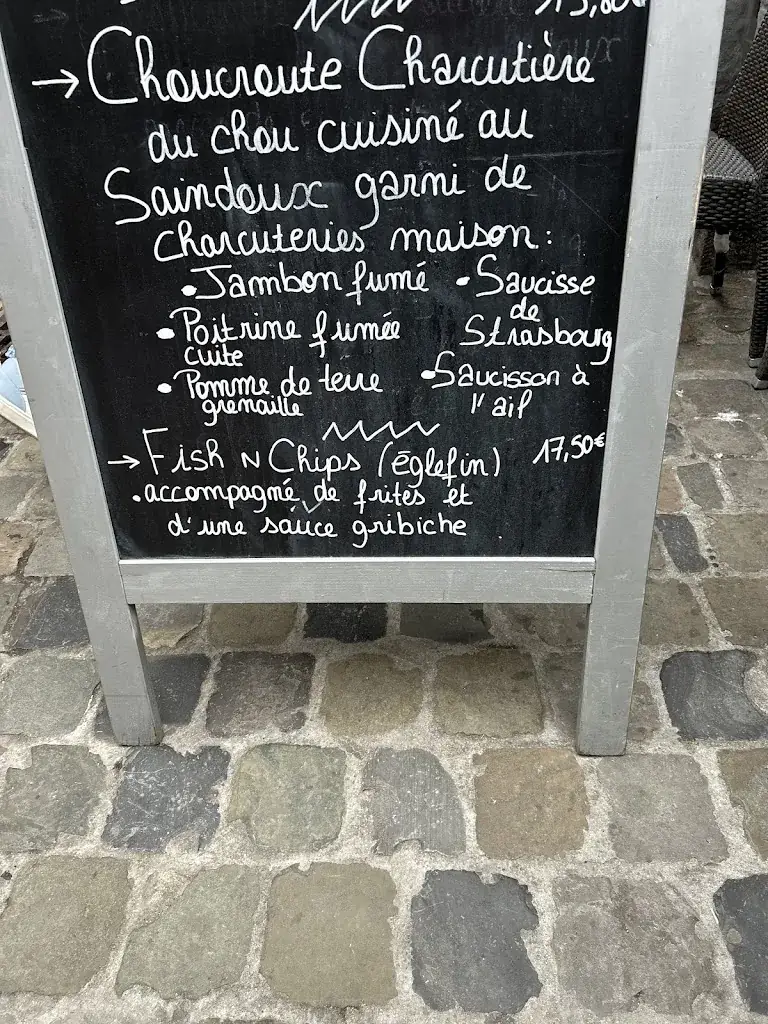 → Choucroute Charcutière
du chou cuisiné au
Saindoux garni de
charcuteries maison :
• Jambon fumé • Saucisse
de
• Poitrine fumée Strasbourg
cuite
• Pomme de terre • Saucisson à
grenaille l'ail
→ Fish N Chips (églefin) 17,50€
• accompagné de frites et
d'une sauce gribiche